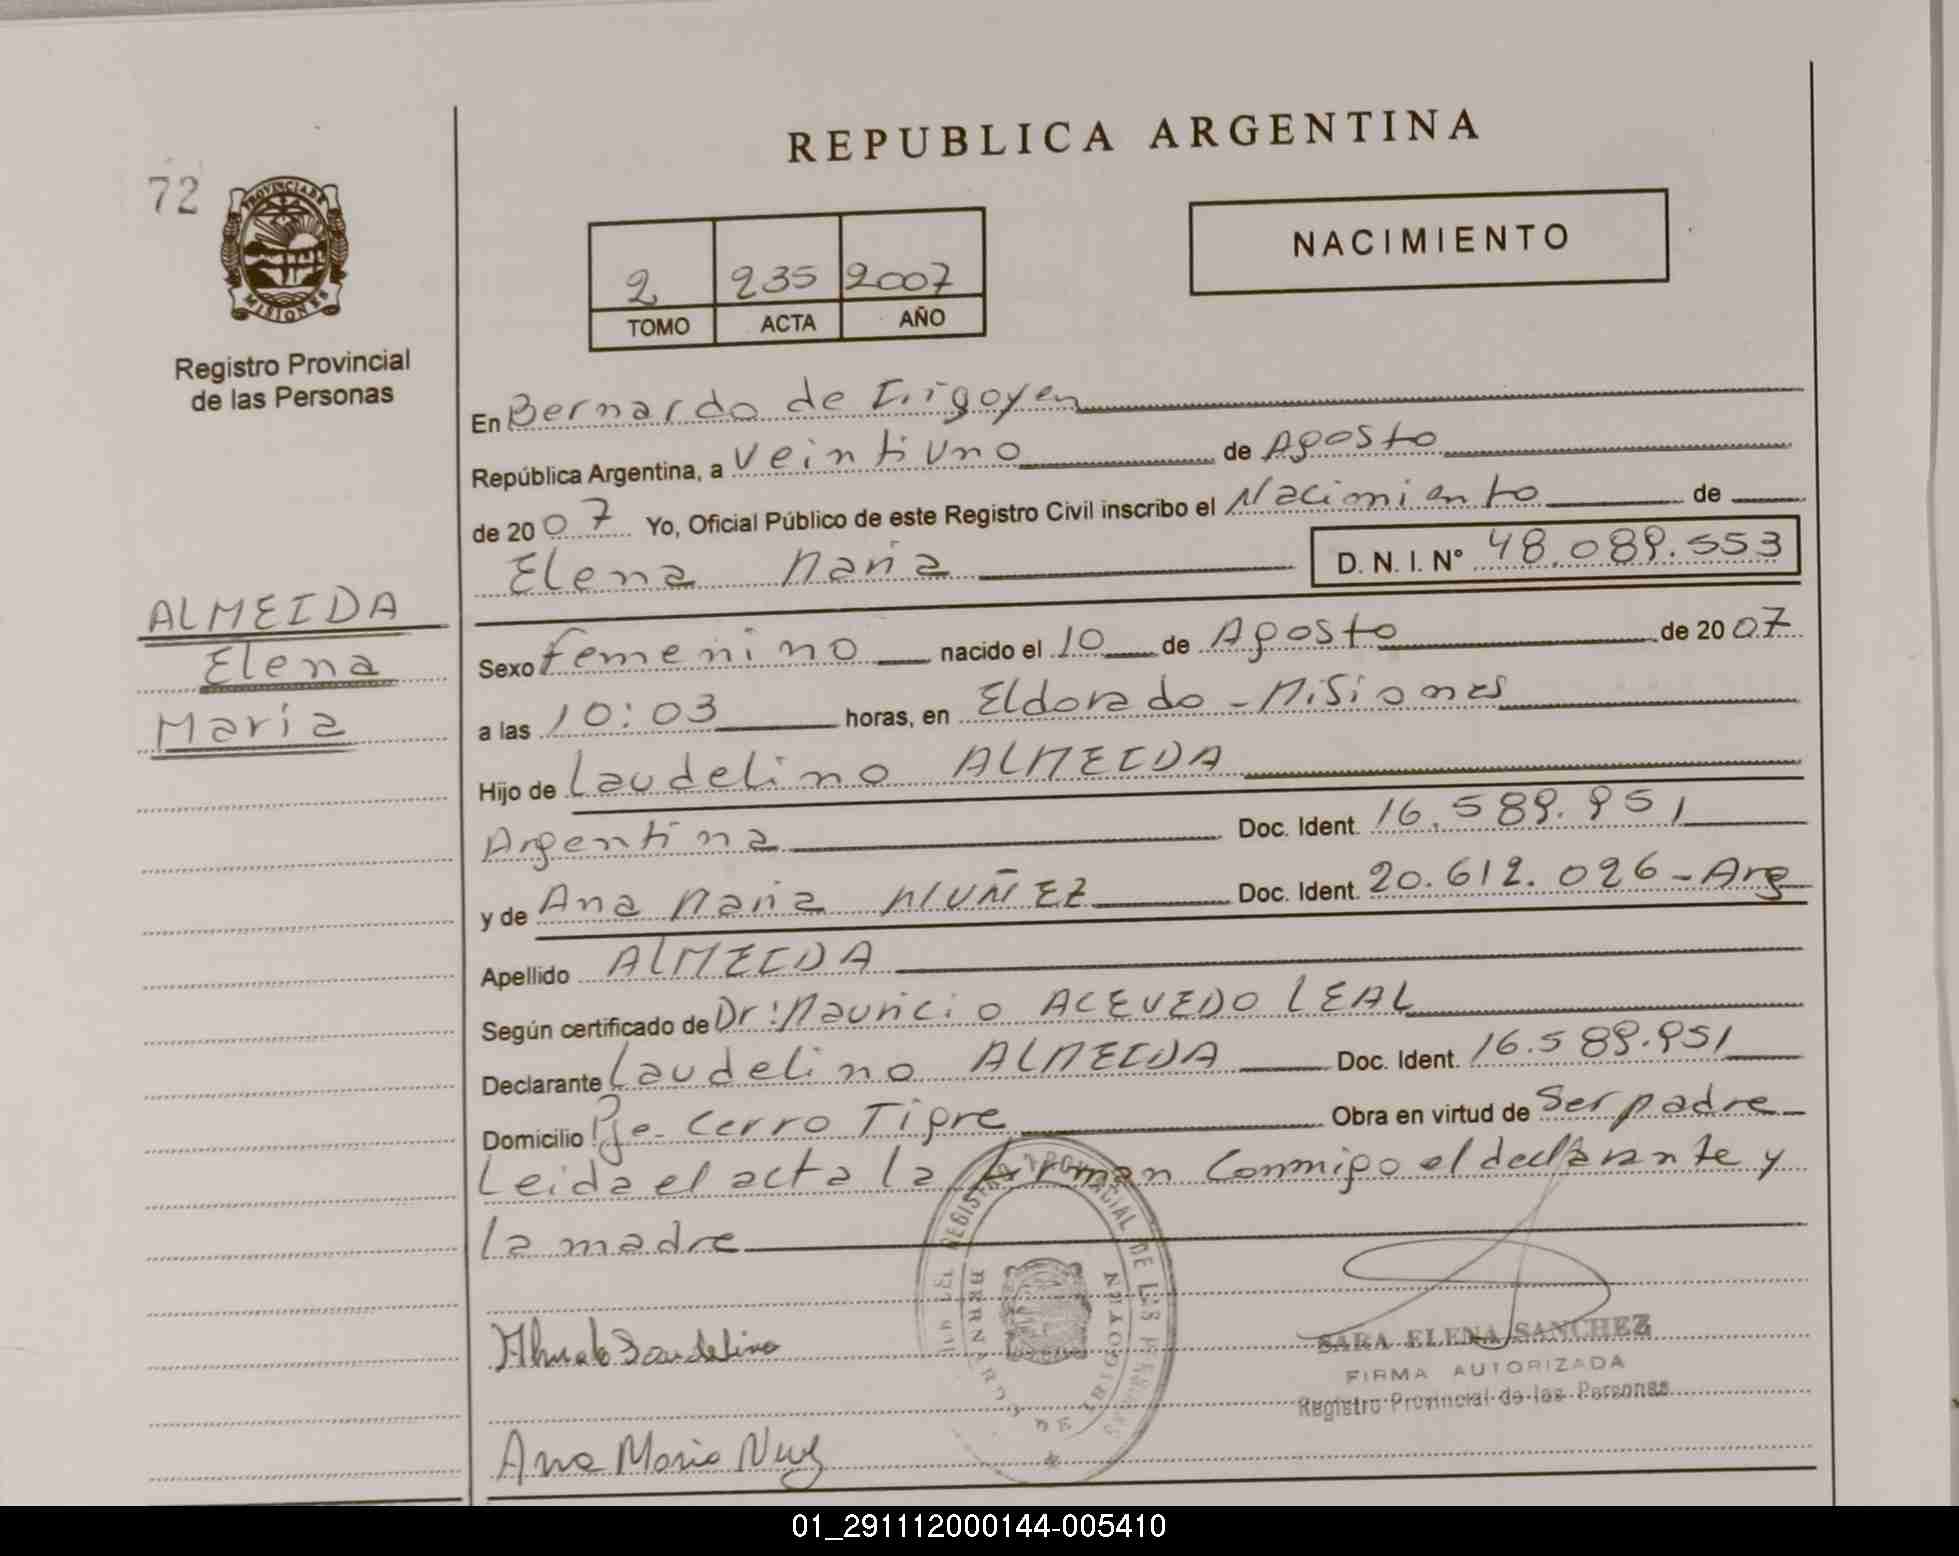 REPUBLICA ARGENTINA
72
PROVINCIA DE
MISIONES
Registro Provincial
de las Personas
2 235 2007
TOMO ACTA AÑO
NACIMIENTO
En Bernardo de Irigoyen
República Argentina, a Veintiuno de Agosto
de 2007 Yo, Oficial Público de este Registro Civil inscribo el Nacimiento de
Elena Maria D. N. I. N° 48.089.553
ALMEIDA
Elena
Maria
Sexo Femenino nacido el 10 de Agosto de 2007
a las 10:03 horas, en Eldorado - Misiones
Hijo de Laudelino ALMEIDA
Argentina Doc. Ident. 16.589.951
y de Ana Maria NUÑEZ Doc. Ident. 20.612.026 - Arg
Apellido ALMEIDA
Según certificado de Dr: Mauricio ACEVEDO LEAL
Declarante Laudelino ALMEIDA Doc. Ident. 16.589.951
Domicilio Pje. Cerro Tigre Obra en virtud de Ser padre
Leida el acta la firman Conmigo el declarante y
la madre
REGISTRO PROVINCIAL DE LAS PERSONAS
BERNARDO DE IRIGOYEN
Laudelino
SARA ELENA SANCHEZ
FIRMA AUTORIZADA
Registro Provincial de las Personas
Ana Maria
01_291112000144-005410